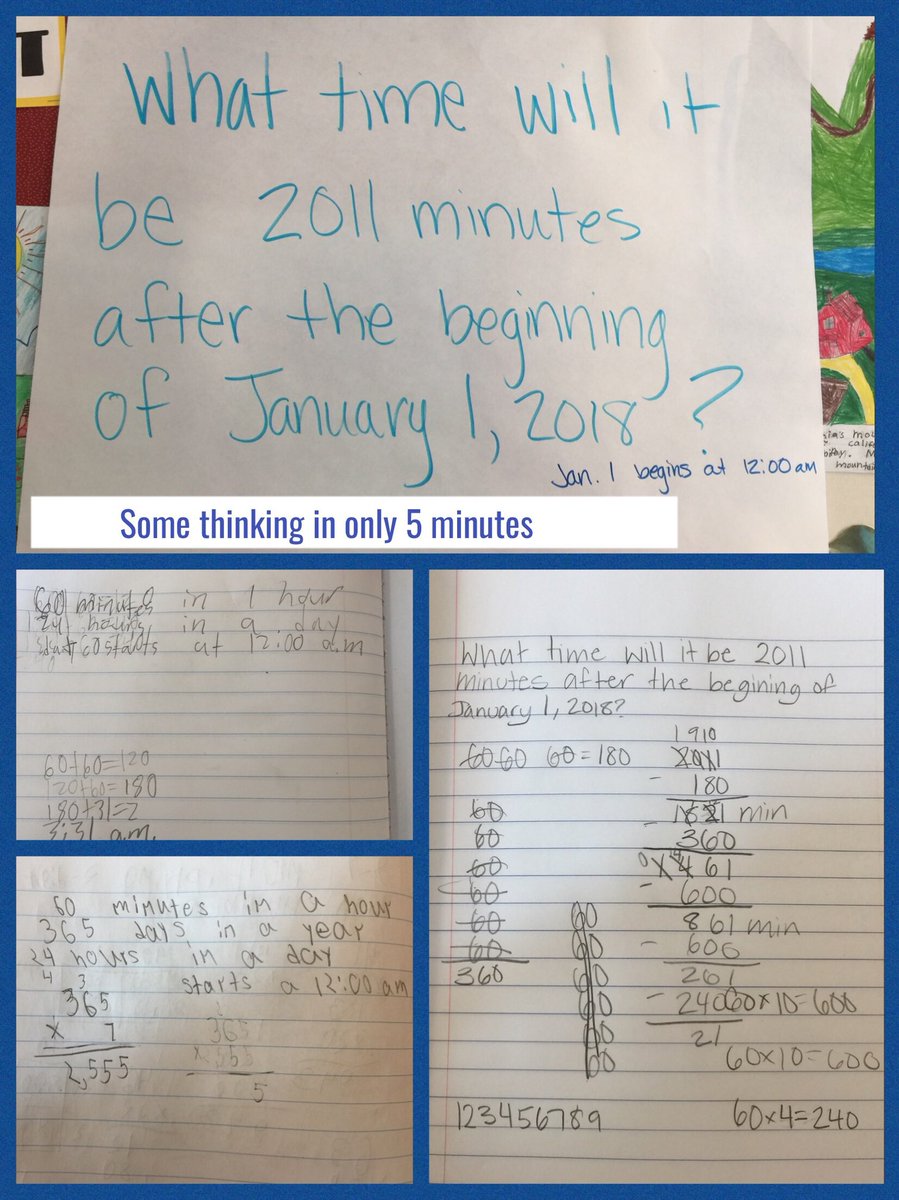 What time will it
be 2011 minutes
after the beginning
of January 1, 2018?
Jan. 1 begins at 12:00 am
Some thinking in only 5 minutes
60 minutes in 1 hour
24 hours in a day
starts at 12:00 a.m
60+60=120
120+60=180
180+31=2
3:31 a.m.
60 minutes in a hour
365 days in a year
24 hours in a day
starts a 12:00 am
4 3
365
x 7
2,555
365
x 365
5
What time will it be 2011
minutes after the begining of
January 1, 2018?
60 60 60=180
60
60
60
60
60
60
360
60
60
60
60
60
60
123456789
1910
2011
- 180
min
- 360
461
- 600
861 min
- 600
261
- 240
21
60x10=600
60x10=600
60x4=240